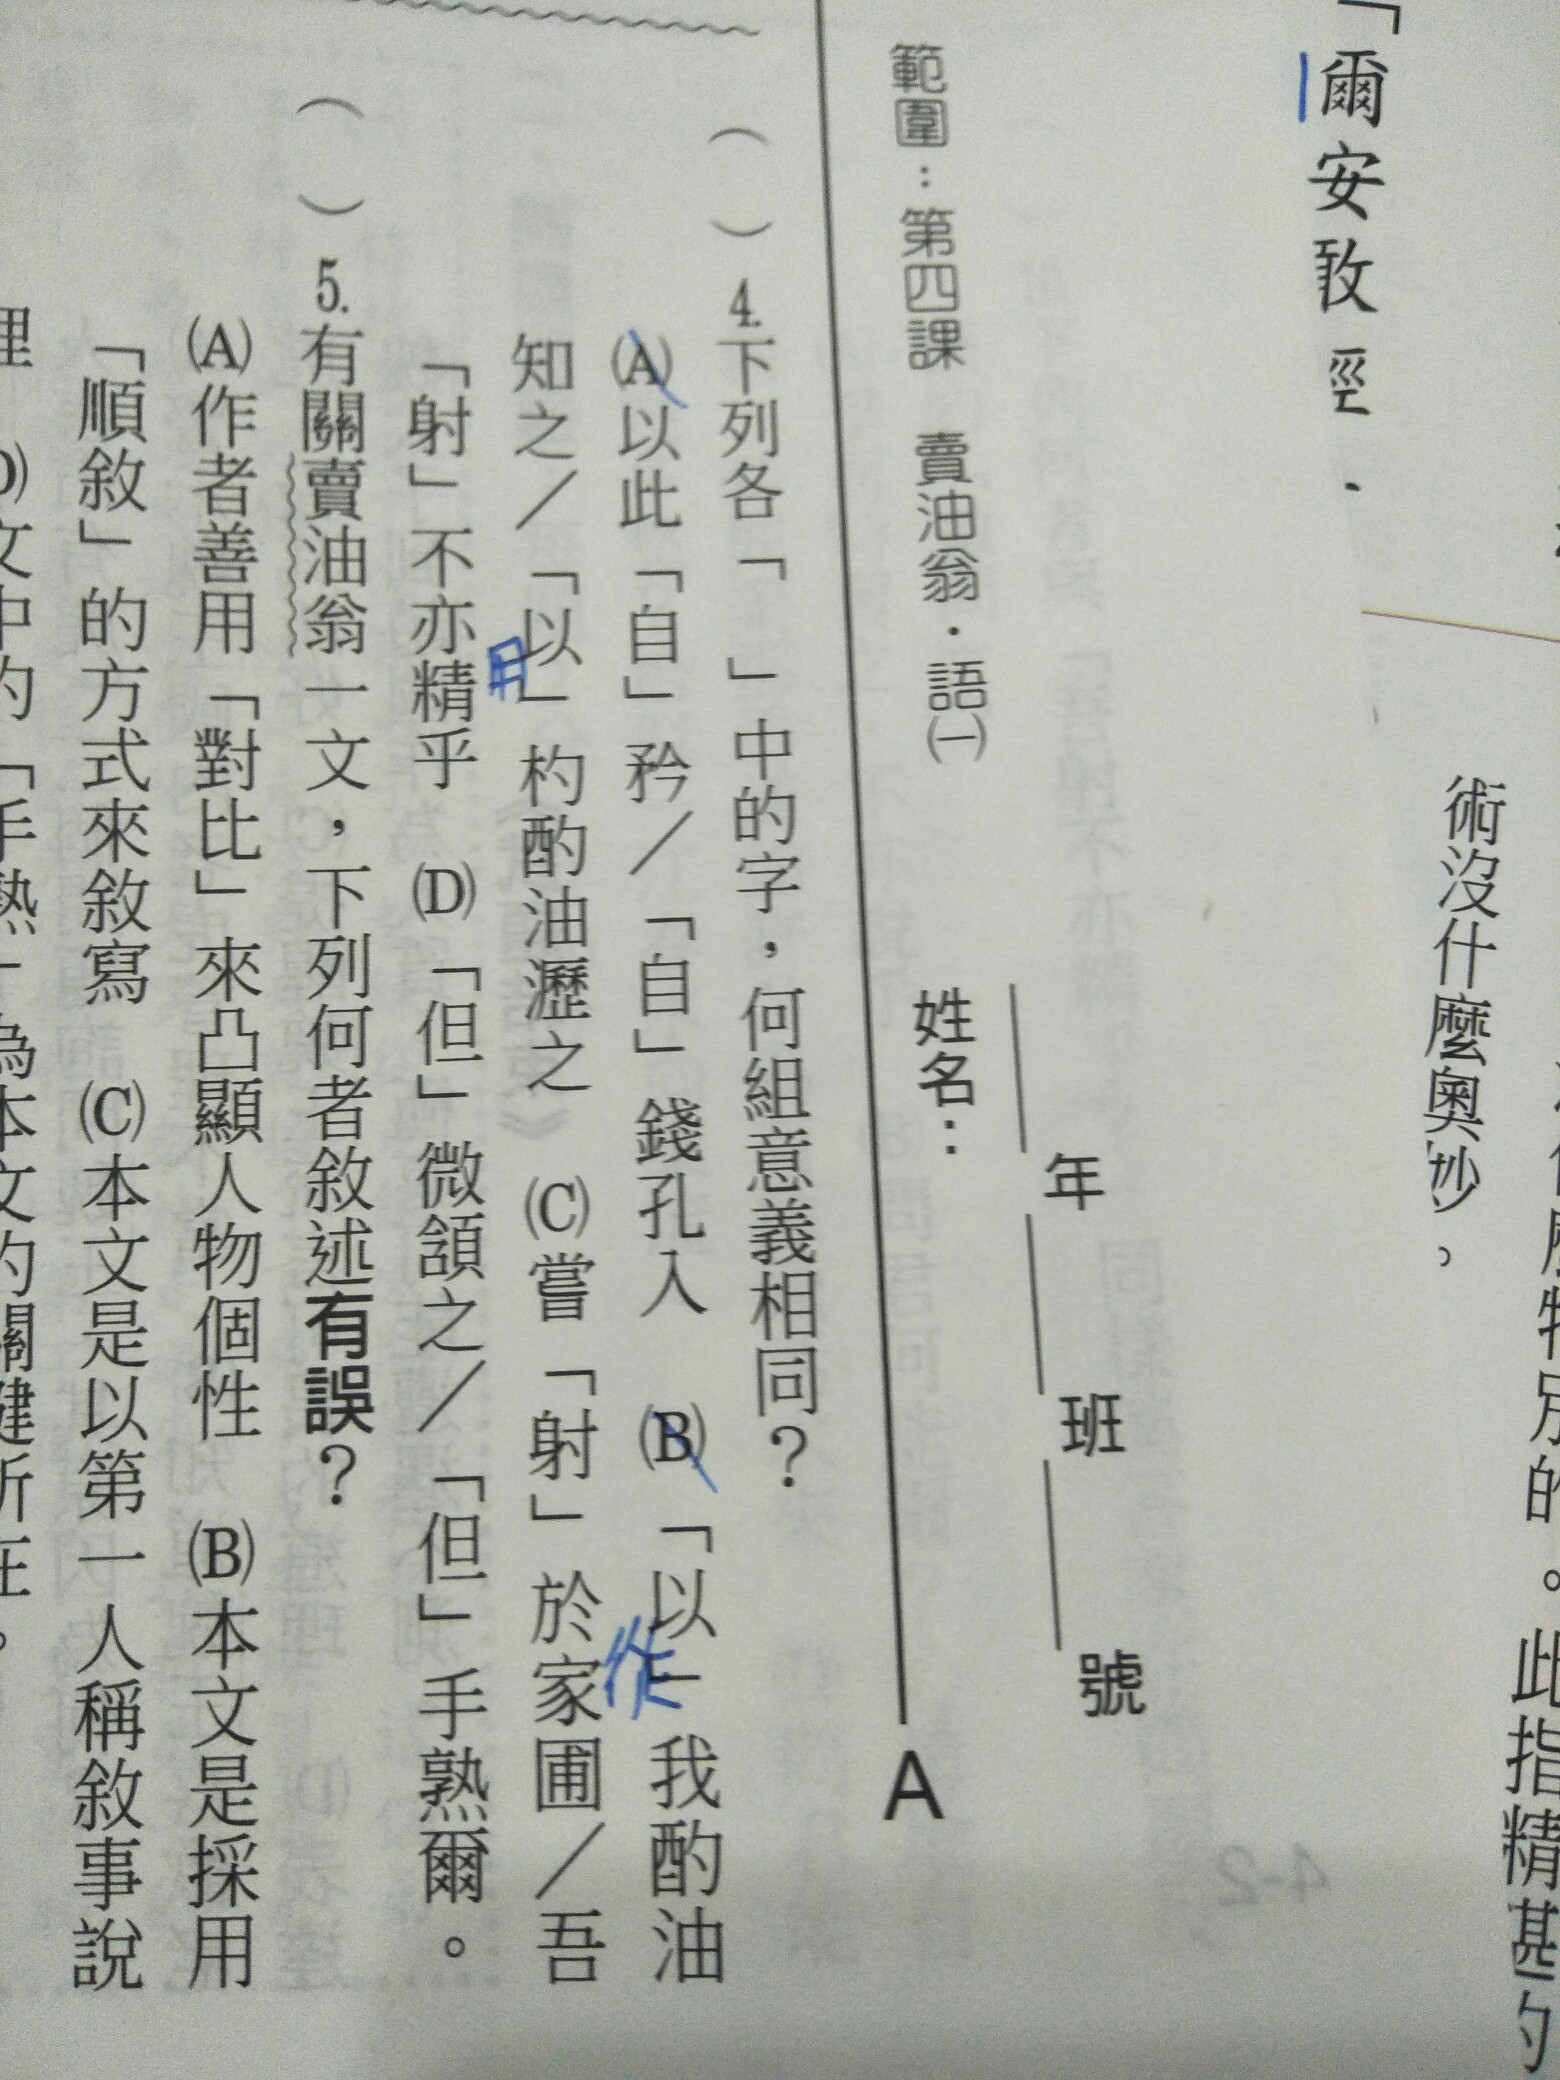 「爾安敢輕
術沒什麼奧妙。
特別的。此指精甚的
年 班 號
姓名：
範圍：第四課 賣油翁．語㈠
A
（ ）4.下列各「 」中的字，何組意義相同？
(A)以此「自」矜／「自」錢孔入 (B)「以」我酌油
作
知之／「以」杓酌油瀝之 (C)嘗「射」於家圃／吾
用
「射」不亦精乎 (D)「但」微頷之／「但」手熟爾。
（ ）5.有關賣油翁一文，下列何者敘述有誤？
(A)作者善用「對比」來凸顯人物個性 (B)本文是採用
「順敘」的方式來敘寫 (C)本文是以第一人稱敘事說
理 (D)文中的「手熟」為本文的關鍵所在。
4-2